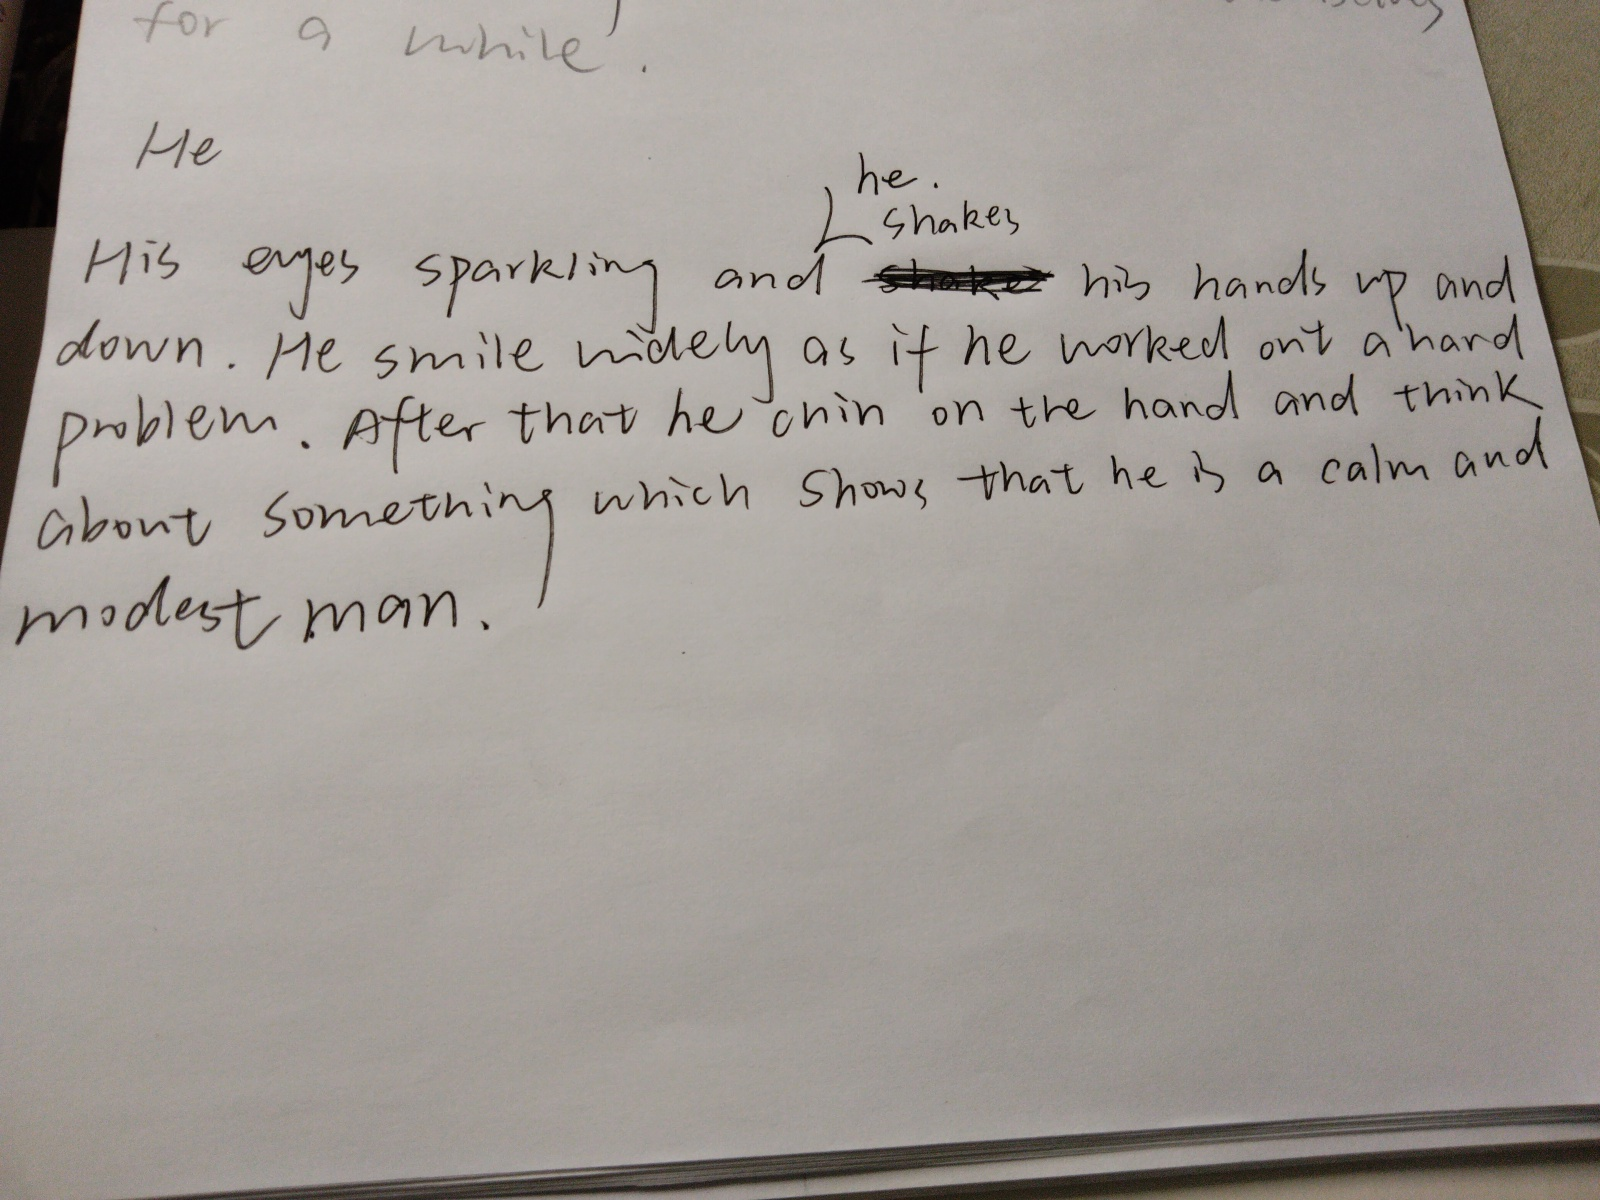 for a while.
He
he.
shakes
His eyes sparkling and shake his hands up and
down. He smile widely as if he worked out a hard
problem. After that he chin on the hand and think
about something which shows that he is a calm and
modest man.